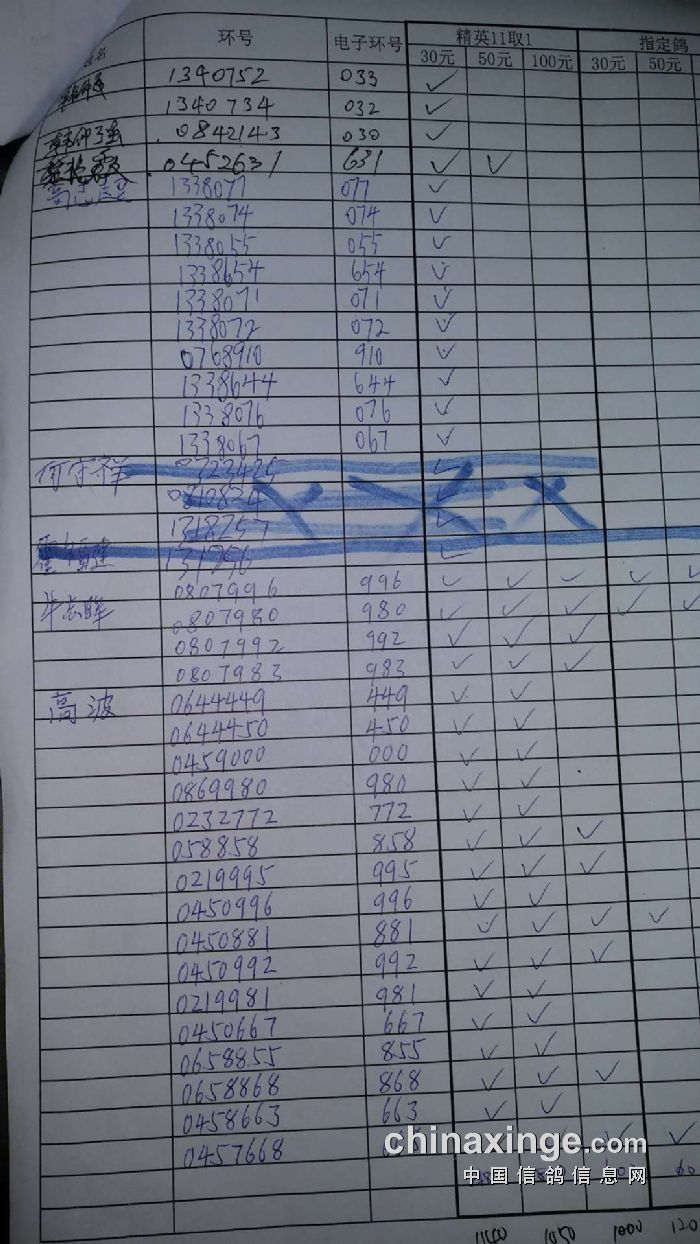 名 环号 电子环号 精英11取1 指定鸽
30元 50元 100元 30元 50元
1340752 033 ✓
1340734 032 ✓
0842143 030 ✓
0452631 631 ✓ ✓
1338077 077 ✓
1338074 074 ✓
1338055 055 ✓
1338654 654 ✓
1338071 071 ✓
1338072 072 ✓
0768910 910 ✓
1338644 644 ✓
1338076 076 ✓
1338067 067 ✓
何守祥 0723425 ✓
0810824 ✓
1318257 ✓
131796 ✓
0807996 996 ✓ ✓ ✓ ✓ ✓
牛志晖 0807980 980 ✓ ✓ ✓ ✓ ✓
0807992 992 ✓ ✓ ✓
0807983 983 ✓ ✓ ✓
高波 0644449 449 ✓ ✓
0644450 450 ✓ ✓
0459000 000 ✓ ✓
0869980 980 ✓ ✓
0232772 772 ✓ ✓
058858 858 ✓ ✓ ✓
0219995 995 ✓ ✓ ✓
0450996 996 ✓ ✓
0450881 881 ✓ ✓ ✓ ✓
0450992 992 ✓ ✓ ✓
0219981 981 ✓ ✓
0450667 667 ✓ ✓
0658855 855 ✓ ✓
0658868 868 ✓ ✓ ✓
0458663 663 ✓ ✓
0457668 ✓ ✓
chinaxinge.com
中国信鸽信息网
1050 1000 120